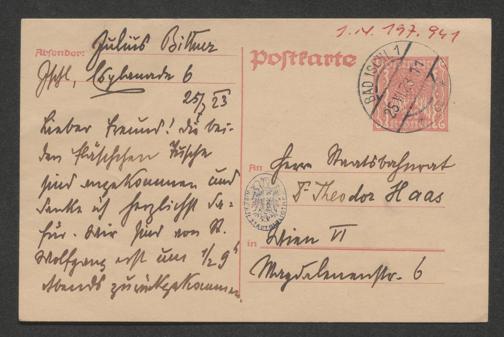 1.N. 197.941
Absender: Julius Bittner
Ischl, Esplanade 6
25/7 23
Lieber Freund! die bei-
den Fläschchen Tusche
sind angekommen und
danke ich herzlichst da-
für. Wir sind von St.
Wolfgang erst um 1/2 9h
Abends zurückgekommen
Postkarte
BAD ISCHL 1
An Herrn Staatsbahnrat
Dr Theodor Haas
in Wien VI
Magdalenenstr. 6